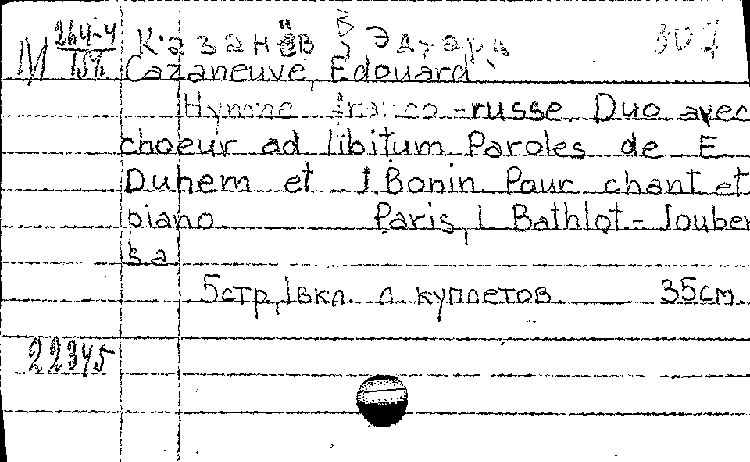 М 264-4/158 Казанёв, Эдуард 307
Cazaneuve, Edouard
Hymne franco-russe. Duo avec
choeur ad libitum Paroles de E
Duhem et J. Bonin Pour chant et
piano Paris, L Bathlot-Jouber
s.a
5стр, 1вкл. л куплетов 35см.
22345